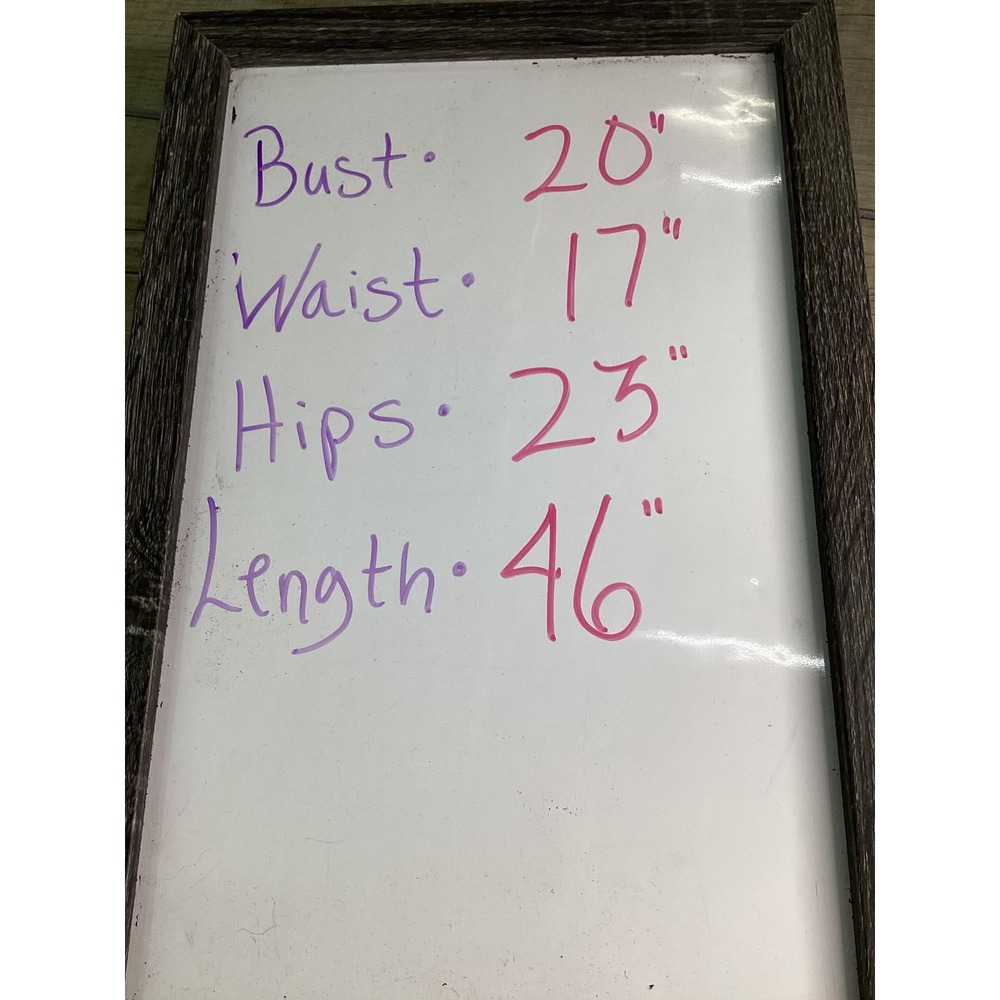 Bust. 20"
Waist. 17"
Hips. 23"
Length. 46"